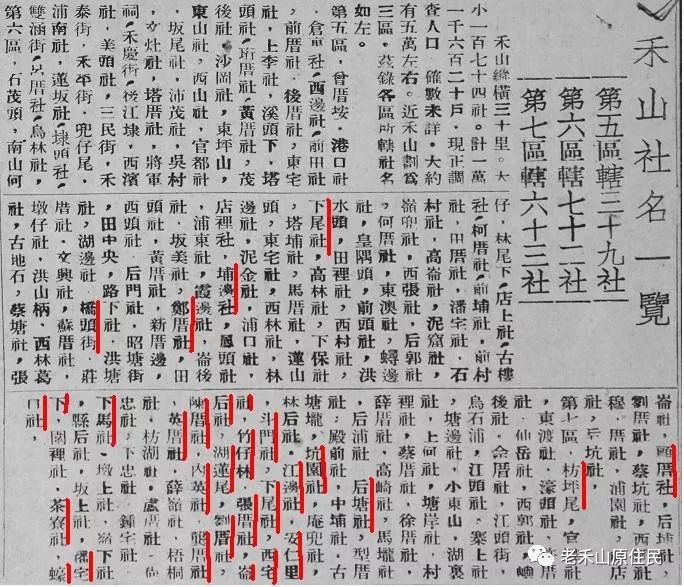 禾山社名一覽
第五區轄三十九社
第六區轄七十二社
第七區轄六十三社
禾山縱橫三十里。大
小一百七十四社。計一萬
一千六百二十戶，現正調
查人口，確數未詳。大約
有五萬左右。近禾山劃爲
三區。茲錄各區所轄社名
如左。
第五區，曾厝垵，港口社
，倉裏社，西邊社，前田社
，前厝社，後厝社，東宅
社，上李社，溪頭下，塔
頭社，珩厝社，黃厝社，茂
後社，沙岡社，東坪山，
東山社，西山社，官都社
，坂尾社，沛茂社，吳村
，文灶社，塔厝社，將軍
祠，禾慶街，後江埭，西濱
社，美頭社，三民街，禾
泰街，禾平街，兜仔尾，
浦南社，蓮坂社，埭頭社，
雙涵街，呂厝社，烏林社，
第六區，石茂頭，南山何
仔，林尾下，店上社，古樓
社，柯厝社，前埔社，前村
社，田厝社，潘宅社，石
村社，高崙社，泥窟社，
崙兜社，西張社，后郭社
，何厝社，東澳社，蟳邊
社，皇隅頭，前頭社，洪
水頭，田裡社，西村社，
下尾社，高林社，下保社
，塔埔社，馬厝社，蓮山
頭，東宅社，西林社，林
邊社，泥金社，浦口社，
店裡社，埔邊社，鳳頭社
，浦東社，霞邊社，崙後
社，坂美社，鄭厝社，田
頭社，黃厝社，新厝邊，
西頭社，后門社，昭塘街
，田中央，路下社，洪塘
社，湖邊社，橋頭街，莊
厝社，文興社，蘇厝社，
墩仔社，洪山柄，西林葛
社，古地石，蔡塘社，張
崙社，厝社，后埔社，
劉厝社，蔡坑社，西
穆厝社，浦園社，
社，后坑社，
第七區，枋坪尾，官
，東渡社，濠頭社，
社，仙岳社，西郭社，嶼
後社，金厝社，江頭街，
烏石浦，江頭社，寨上社
，塘邊社，小東山，湖裏
社，上何社，塘岸社，村
裡社，蔡厝社，徐厝社，
薛厝社，高崎社，馬壠社
，后浦社，后塘社，型厝
社，殿前社，中埔社，古
塘壠，坑園社，庵兜社，
林后社，江邊社，安仁里
，斗門社，下尾社，西宅
社，竹仔林，張厝社，崙
后社，湖蓮尾，劉厝社，
陳厝社，內英社，龔厝社
，英厝社，薛嶺社，梧桐
社，枋湖社，盧厝社，尚
忠社，下忠社，鍾宅社，
下馬社，墩上社，嶺下社
，縣后社，坂上社，潘宅
下，園裡社，茶寮社，蠔
口社，
老禾山原住民